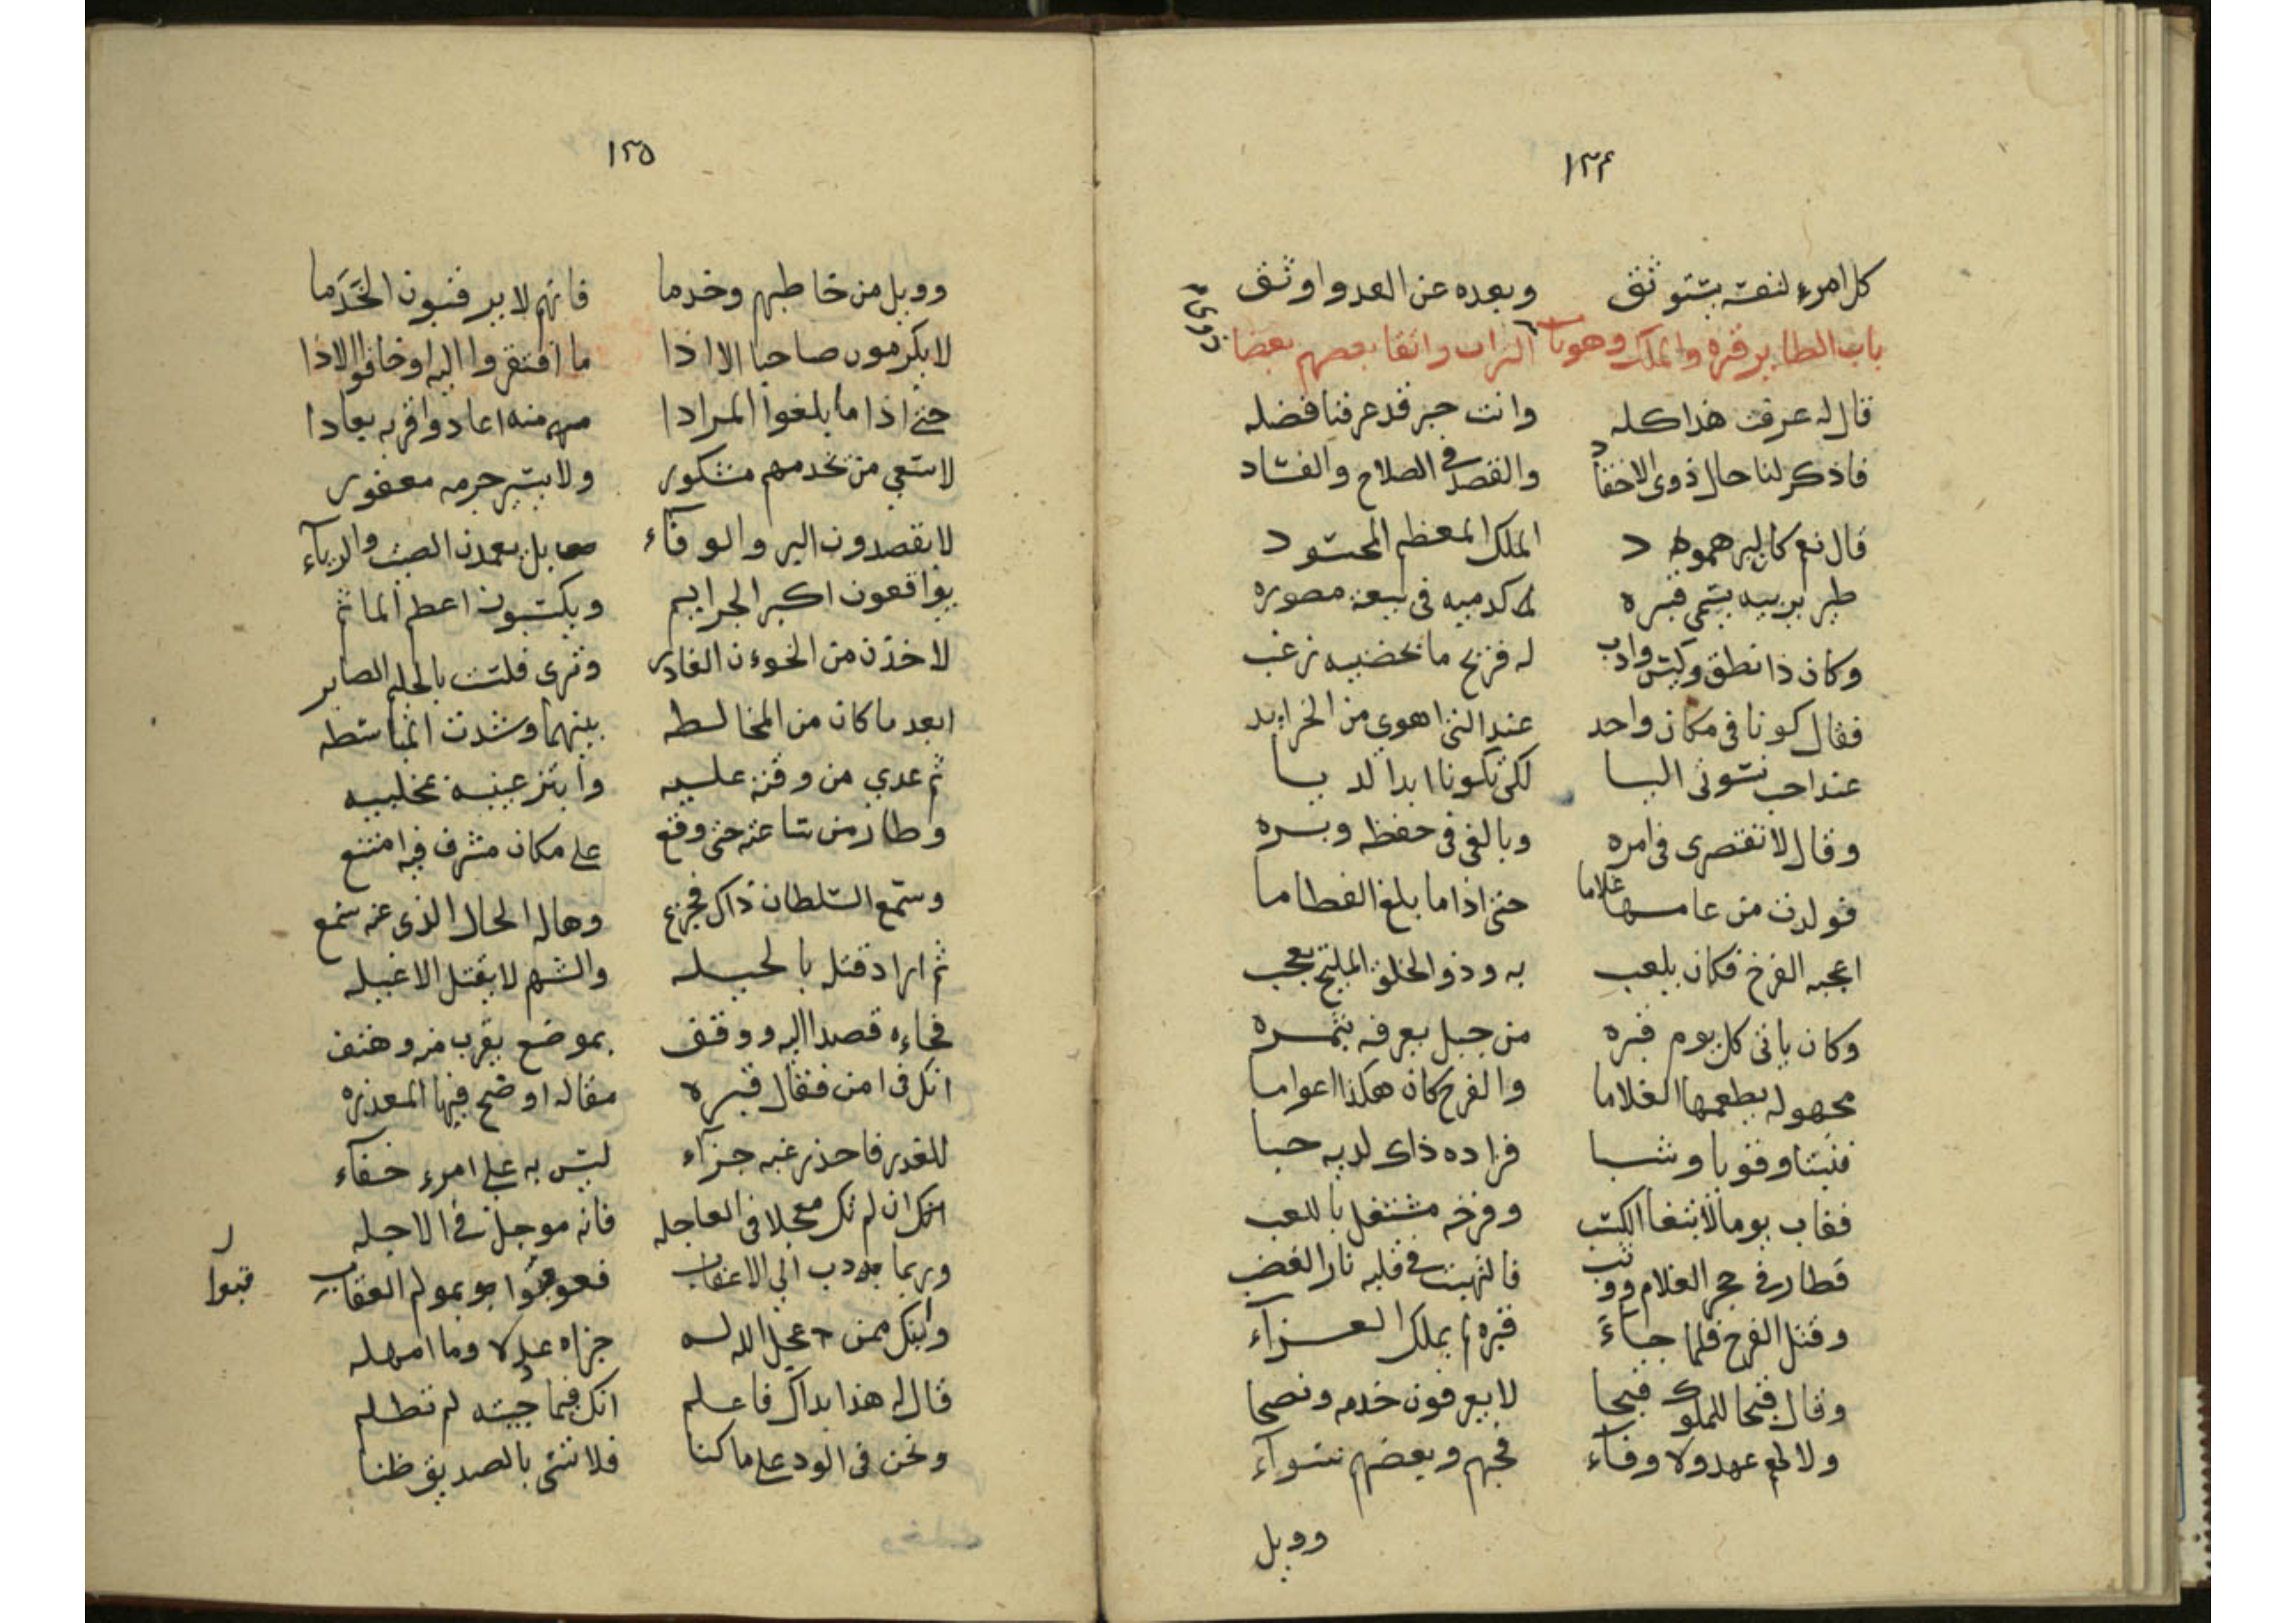 ١٣۴
كل امرء لنفسه يستوثق وبعده عن العدو اوثق
باب الطاير قبره والملك وهو باب التراب واتقا بعضهم بعضا
قال له عرفت هذا كله وانت حبر قد عرفنا فضله
فاذكر لنا حال ذوى الاحقاد والقصد في الصلاح والفساد
قال نعم كان لبرهمود الملك المعظم المحسود
طير يربيه يسمى قبره في بيعة مصوره
وكان ذا نطق وكيس وادب له فرخ ما بخضيبه زغب
فقال كونا في مكان واحد عند التى اهوى من الخرايد
عند احب نسوتى اليا لكى تكونا ابدا لديا
وقال لا تقصرى فى امره وبالغى فى حفظه وبسره
فولدت من عامها غلاما حتى اذا ما بلغ الفطاما
اعجبه الفرخ فكان يلعب به وذو الخلق المليح يعجب
وكان ياتى كل يوم قبره من جبل يعرفه بثمره
مجهولة يطعمها الغلاما والفرخ كان هكذا اعواما
فنبتا وقويا وشبا فزاده ذاك لديه حبا
فغاب يوما لابتغا الكسب وفرخه مشتغل باللعب
فطار في حجر الغلام ووثب فالتهبت في قلبه نار الغضب
وقتل الفرخ فلما جاء قبره لم يملك العزاء
وقال قبحا للملوك قبحا لا يعرفون خدمه ونصحا
ولا لهم عهد ولا وفاء فحبهم وبعضهم سواء
وويل
١٢٥
وويل من خاطبهم وخدما فانهم لا يرقبون الخدما
لا يكرمون صاحبا الا اذا ما افتقروا اليه او خافوا الاذا
حتى اذا ما بلغوا المرادا منهم منه اعادوا قربه بعادا
لا سعى من يخدمهم مشكور ولا يسير جرمه مغفور
لا يقصدون البر والوفاء بل يعمدن الصيت والرياء
يواقعون اكبر الجرايم ويكسبون اعظم المآثم
لاخذن من الخوءن الغادر وترى فلست بالحليم الصابر
ابعد ما كان من المخالطه بينهما وشدت المباسطه
ثم عدى من وقته عليه وابتز عينيه بمخلبيه
وطار من ساعته حتى وقع على مكان مشرف فيه امتنع
وسمع السلطان ذاك فجزع وهاله الحال الذى عنه سمع
ثم اراد قتله بالحيله والشهم لا يقتل الا غيله
فجاءه قصدا اليه ووقف بموضع يقرب منه وهتف
انك فى امن فقال قبره مقاله اوضح فيها المعذره
للغدر فاحذر غبه جزاء ليس به على امرء خفاء
انك ان لم تك معجلا فى العاجله فانه موجل في الاجله
وربما دب الى الاعقاب فعوقبوا بمولم العقاب
قبوا
وانك ممن عجل الله له جزاه عدلا وما امهله
قال له هذا بذاك فاعلم انك فيما جيته لم تظلم
ونحن فى الود على ما كنا فلا تسئ بالصديق ظنا